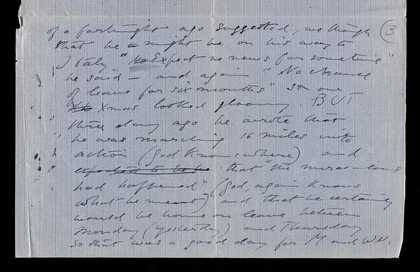 of a fortnight ago suggested, we thought (3)
that he might be on his way to
Italy "Expect no news for sometime"
he said – and again "No chance
of leave for six months" so our
Xmas looked gloomy BUT
three days ago he wrote that
"he was marching 16 miles into
action (God knows where) and
that "the miracle
had happened" (God, again knows
what he meant) and that he certainly
would be home on leave between
Monday (yesterday) and Thursday
so that was a good day for M and W.